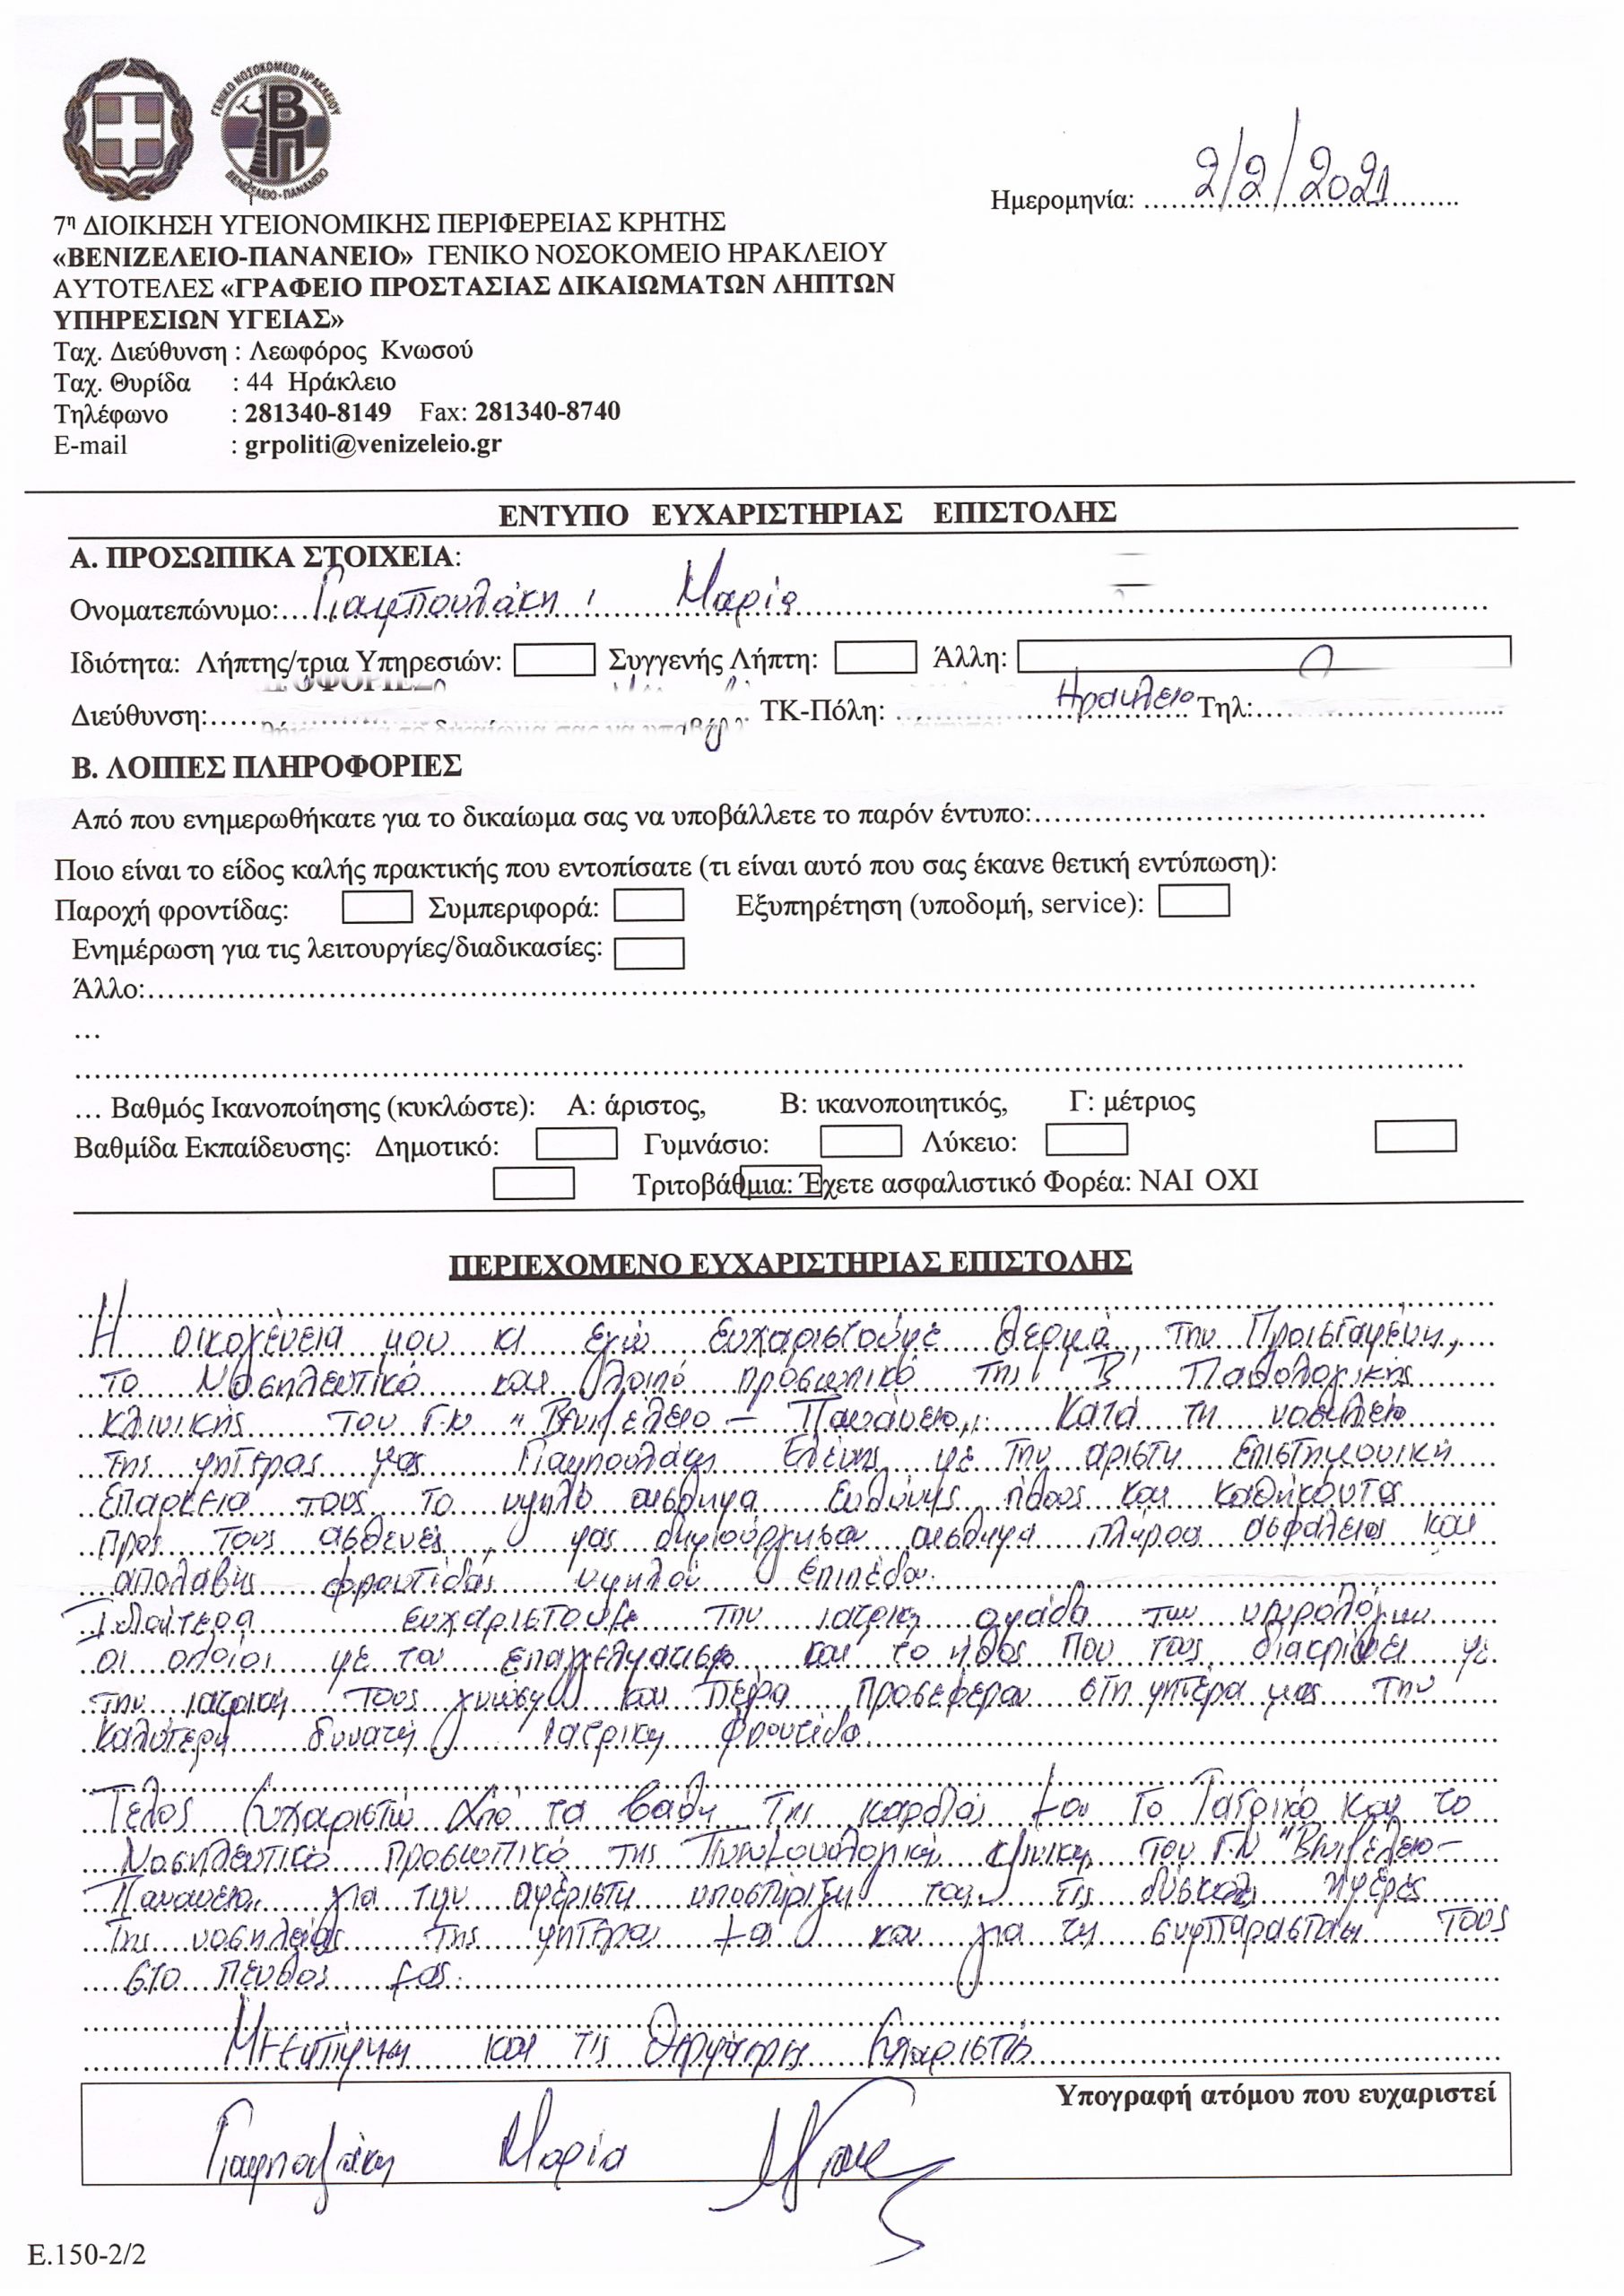 ΓΕΝΙΚΟ ΝΟΣΟΚΟΜΕΙΟ ΗΡΑΚΛΕΙΟΥ
ΒΠ
ΒΕΝΙΖΕΛΕΙΟ - ΠΑΝΑΝΕΙΟ
Ημερομηνία: 2/2/2021
7η ΔΙΟΙΚΗΣΗ ΥΓΕΙΟΝΟΜΙΚΗΣ ΠΕΡΙΦΕΡΕΙΑΣ ΚΡΗΤΗΣ
«ΒΕΝΙΖΕΛΕΙΟ-ΠΑΝΑΝΕΙΟ» ΓΕΝΙΚΟ ΝΟΣΟΚΟΜΕΙΟ ΗΡΑΚΛΕΙΟΥ
ΑΥΤΟΤΕΛΕΣ «ΓΡΑΦΕΙΟ ΠΡΟΣΤΑΣΙΑΣ ΔΙΚΑΙΩΜΑΤΩΝ ΛΗΠΤΩΝ
ΥΠΗΡΕΣΙΩΝ ΥΓΕΙΑΣ»
Ταχ. Διεύθυνση : Λεωφόρος Κνωσού
Ταχ. Θυρίδα : 44 Ηράκλειο
Τηλέφωνο : 281340-8149 Fax: 281340-8740
E-mail : grpoliti@venizeleio.gr
ΕΝΤΥΠΟ ΕΥΧΑΡΙΣΤΗΡΙΑΣ ΕΠΙΣΤΟΛΗΣ
Α. ΠΡΟΣΩΠΙΚΑ ΣΤΟΙΧΕΙΑ:
Ονοματεπώνυμο: Γιαμπουλάκη Μαρία
Ιδιότητα: Λήπτης/τρια Υπηρεσιών: Συγγενής Λήπτη: Άλλη:
Διεύθυνση: ΤΚ-Πόλη: Ηρακλειο Τηλ:
Β. ΛΟΙΠΕΣ ΠΛΗΡΟΦΟΡΙΕΣ
Από που ενημερωθήκατε για το δικαίωμα σας να υποβάλλετε το παρόν έντυπο:
Ποιο είναι το είδος καλής πρακτικής που εντοπίσατε (τι είναι αυτό που σας έκανε θετική εντύπωση):
Παροχή φροντίδας: Συμπεριφορά: Εξυπηρέτηση (υποδομή, service):
Ενημέρωση για τις λειτουργίες/διαδικασίες:
Άλλο:
…
… Βαθμός Ικανοποίησης (κυκλώστε): Α: άριστος, Β: ικανοποιητικός, Γ: μέτριος
Βαθμίδα Εκπαίδευσης: Δημοτικό: Γυμνάσιο: Λύκειο:
Τριτοβάθμια: Έχετε ασφαλιστικό Φορέα: ΝΑΙ ΟΧΙ
ΠΕΡΙΕΧΟΜΕΝΟ ΕΥΧΑΡΙΣΤΗΡΙΑΣ ΕΠΙΣΤΟΛΗΣ
Η οικογένεια μου κι εγώ ευχαριστούμε θερμά την Προισταμένη,
το Νοσηλευτικό και λοιπό προσωπικό της Β' Παθολογικής
κλινικής του Γ.Ν "Βενιζελειο - Πανάνειο". Κατά τη νοσηλεία
της μητέρας μας Γιαμπουλάκη Ελένης με την αριστη επιστημονική
επαρκεια τους το υψηλό αισθημα ευθύνης, ηθους και καθήκοντος
προς τους ασθενείς, μας δημιούργησαν αισθημα πλήρους ασφαλειας και
απολαβής φροντίδας υψηλού επιπέδου.
Ιδιαίτερα ευχαριστούμε την ιατρικη ομάδα των
οι οποίοι με τον επαγγελματισμο και το ηθος που τους διακρίνει με
την ιατρικη τους γνώση και πείρα προσεφεραν στη μητέρα μας την
καλύτερη δυνατή ιατρικη φροντίδα
Τελος ευχαριστώ από τα βαθη της καρδιάς μου το Ιατρικό και το
Νοσηλευτικό προσωπικό της Πνευμονολογικής κλινικης του Γ.Ν "Βενιζέλειο-
Πανανειο" για την αμέριστη υποστήριξη τους τις δύσκολες ημέρες
της νοσηλείας της μητέρας μου και για τη συμπαρασταση τους
στο πένθος μας.
Με εκτίμηση και τις θερμότερες ευχαριστίες
Υπογραφή ατόμου που ευχαριστεί
Μαρία
Ε.150-2/2